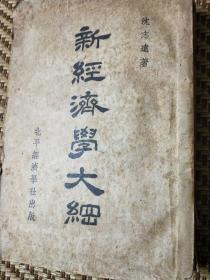 沈志遠著
新經濟學大綱
北平經濟學社出版